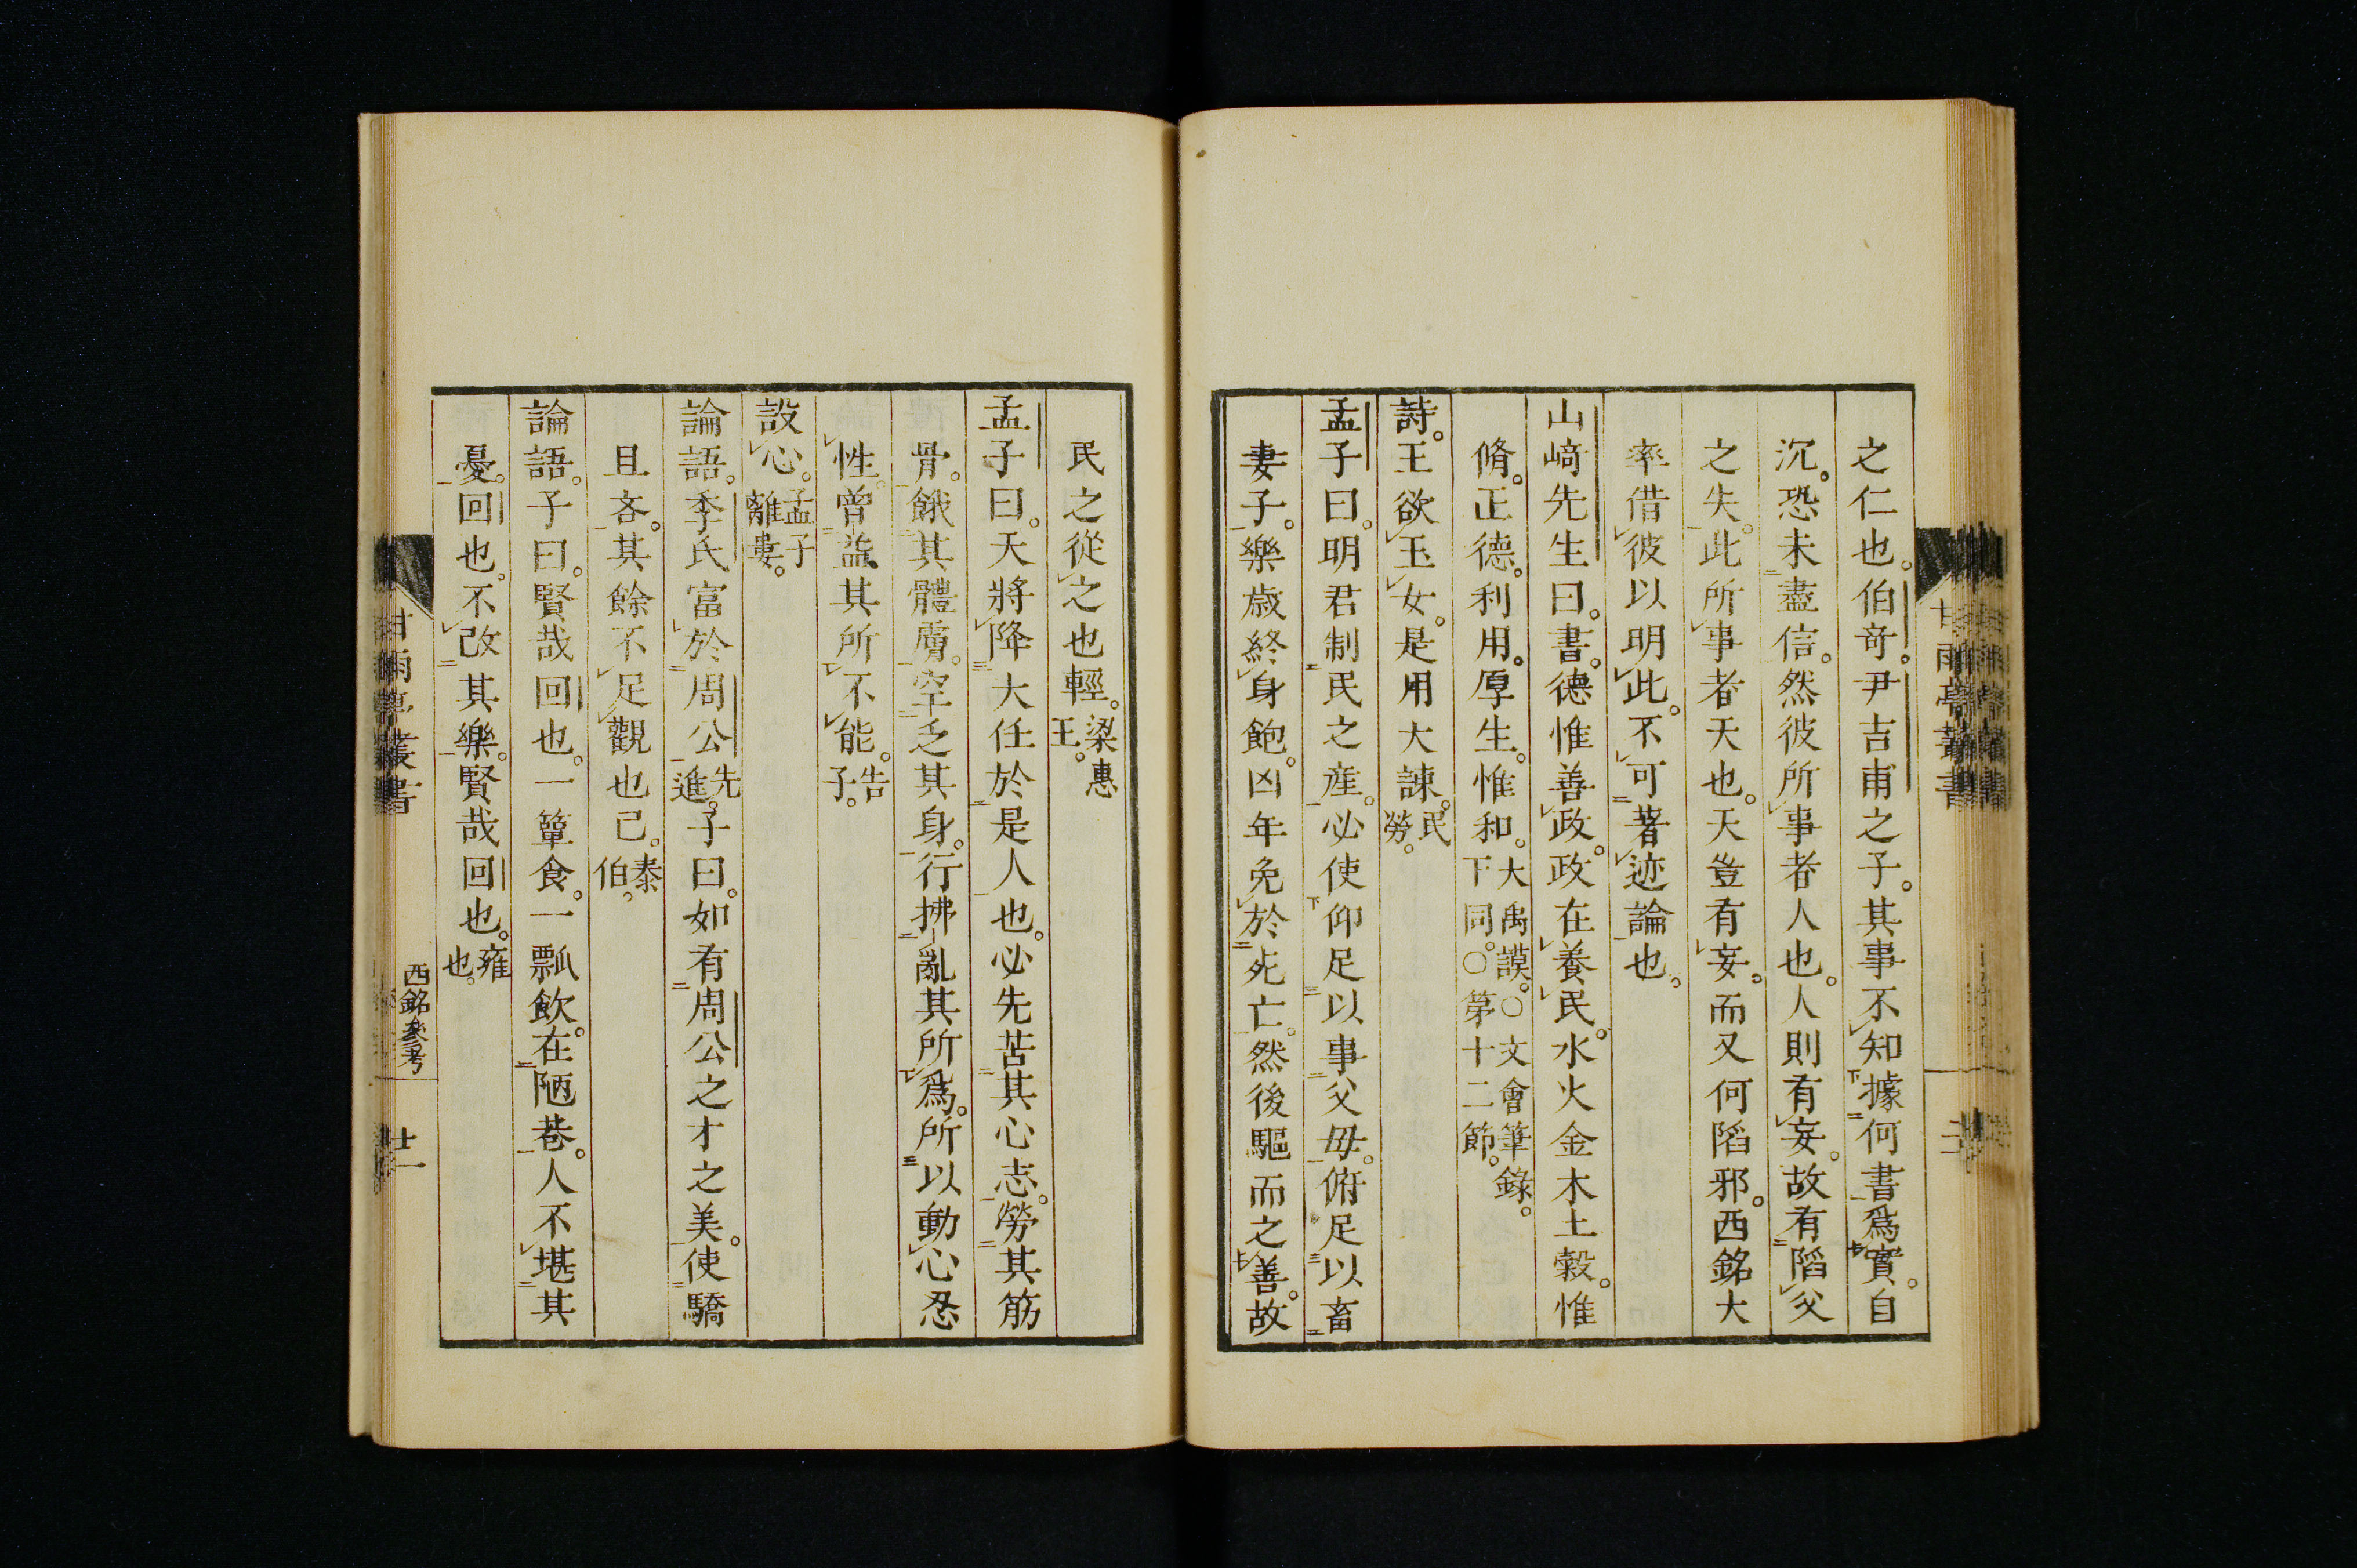 之仁也。伯奇。尹吉甫之子。其事不知據何書爲實。自
沉。恐未盡信。然彼所事者人也。人則有妄。故有陷父
之失。此所事者天也。天豈有妄。而又何陷邪。西銘大
率借彼以明此。不可著迹論也。
山﨑先生曰。書。德惟善政。政在養民。水火金木土穀。惟
脩。正德。利用。厚生。惟和。大禹謨。○文會筆錄。下同。○第十二節。
詩。王欲玉女。是用大諫。民勞。
孟子曰。明君制民之産。必使仰足以事父母。俯足以畜
妻子。樂歳終身飽。凶年免於死亡。然後驅而之善。故
民之從之也輕。梁惠王。
孟子曰。天將降大任於是人也。必先苦其心志。勞其筋
骨。餓其體膚。空乏其身。行拂亂其所爲。所以動心忍
性。曾益其所不能。告子。
設心。孟子離婁。
論語。季氏富於周公。先進。子曰。如有周公之才之美。使驕
且吝。其餘不足觀也已。泰伯。
論語。子曰。賢哉回也。一簞食。一瓢飲。在陋巷。人不堪其
憂。回也。不改其樂。賢哉回也。雍也。
甘雨亭叢書
西銘參考
十一
甘雨亭叢書